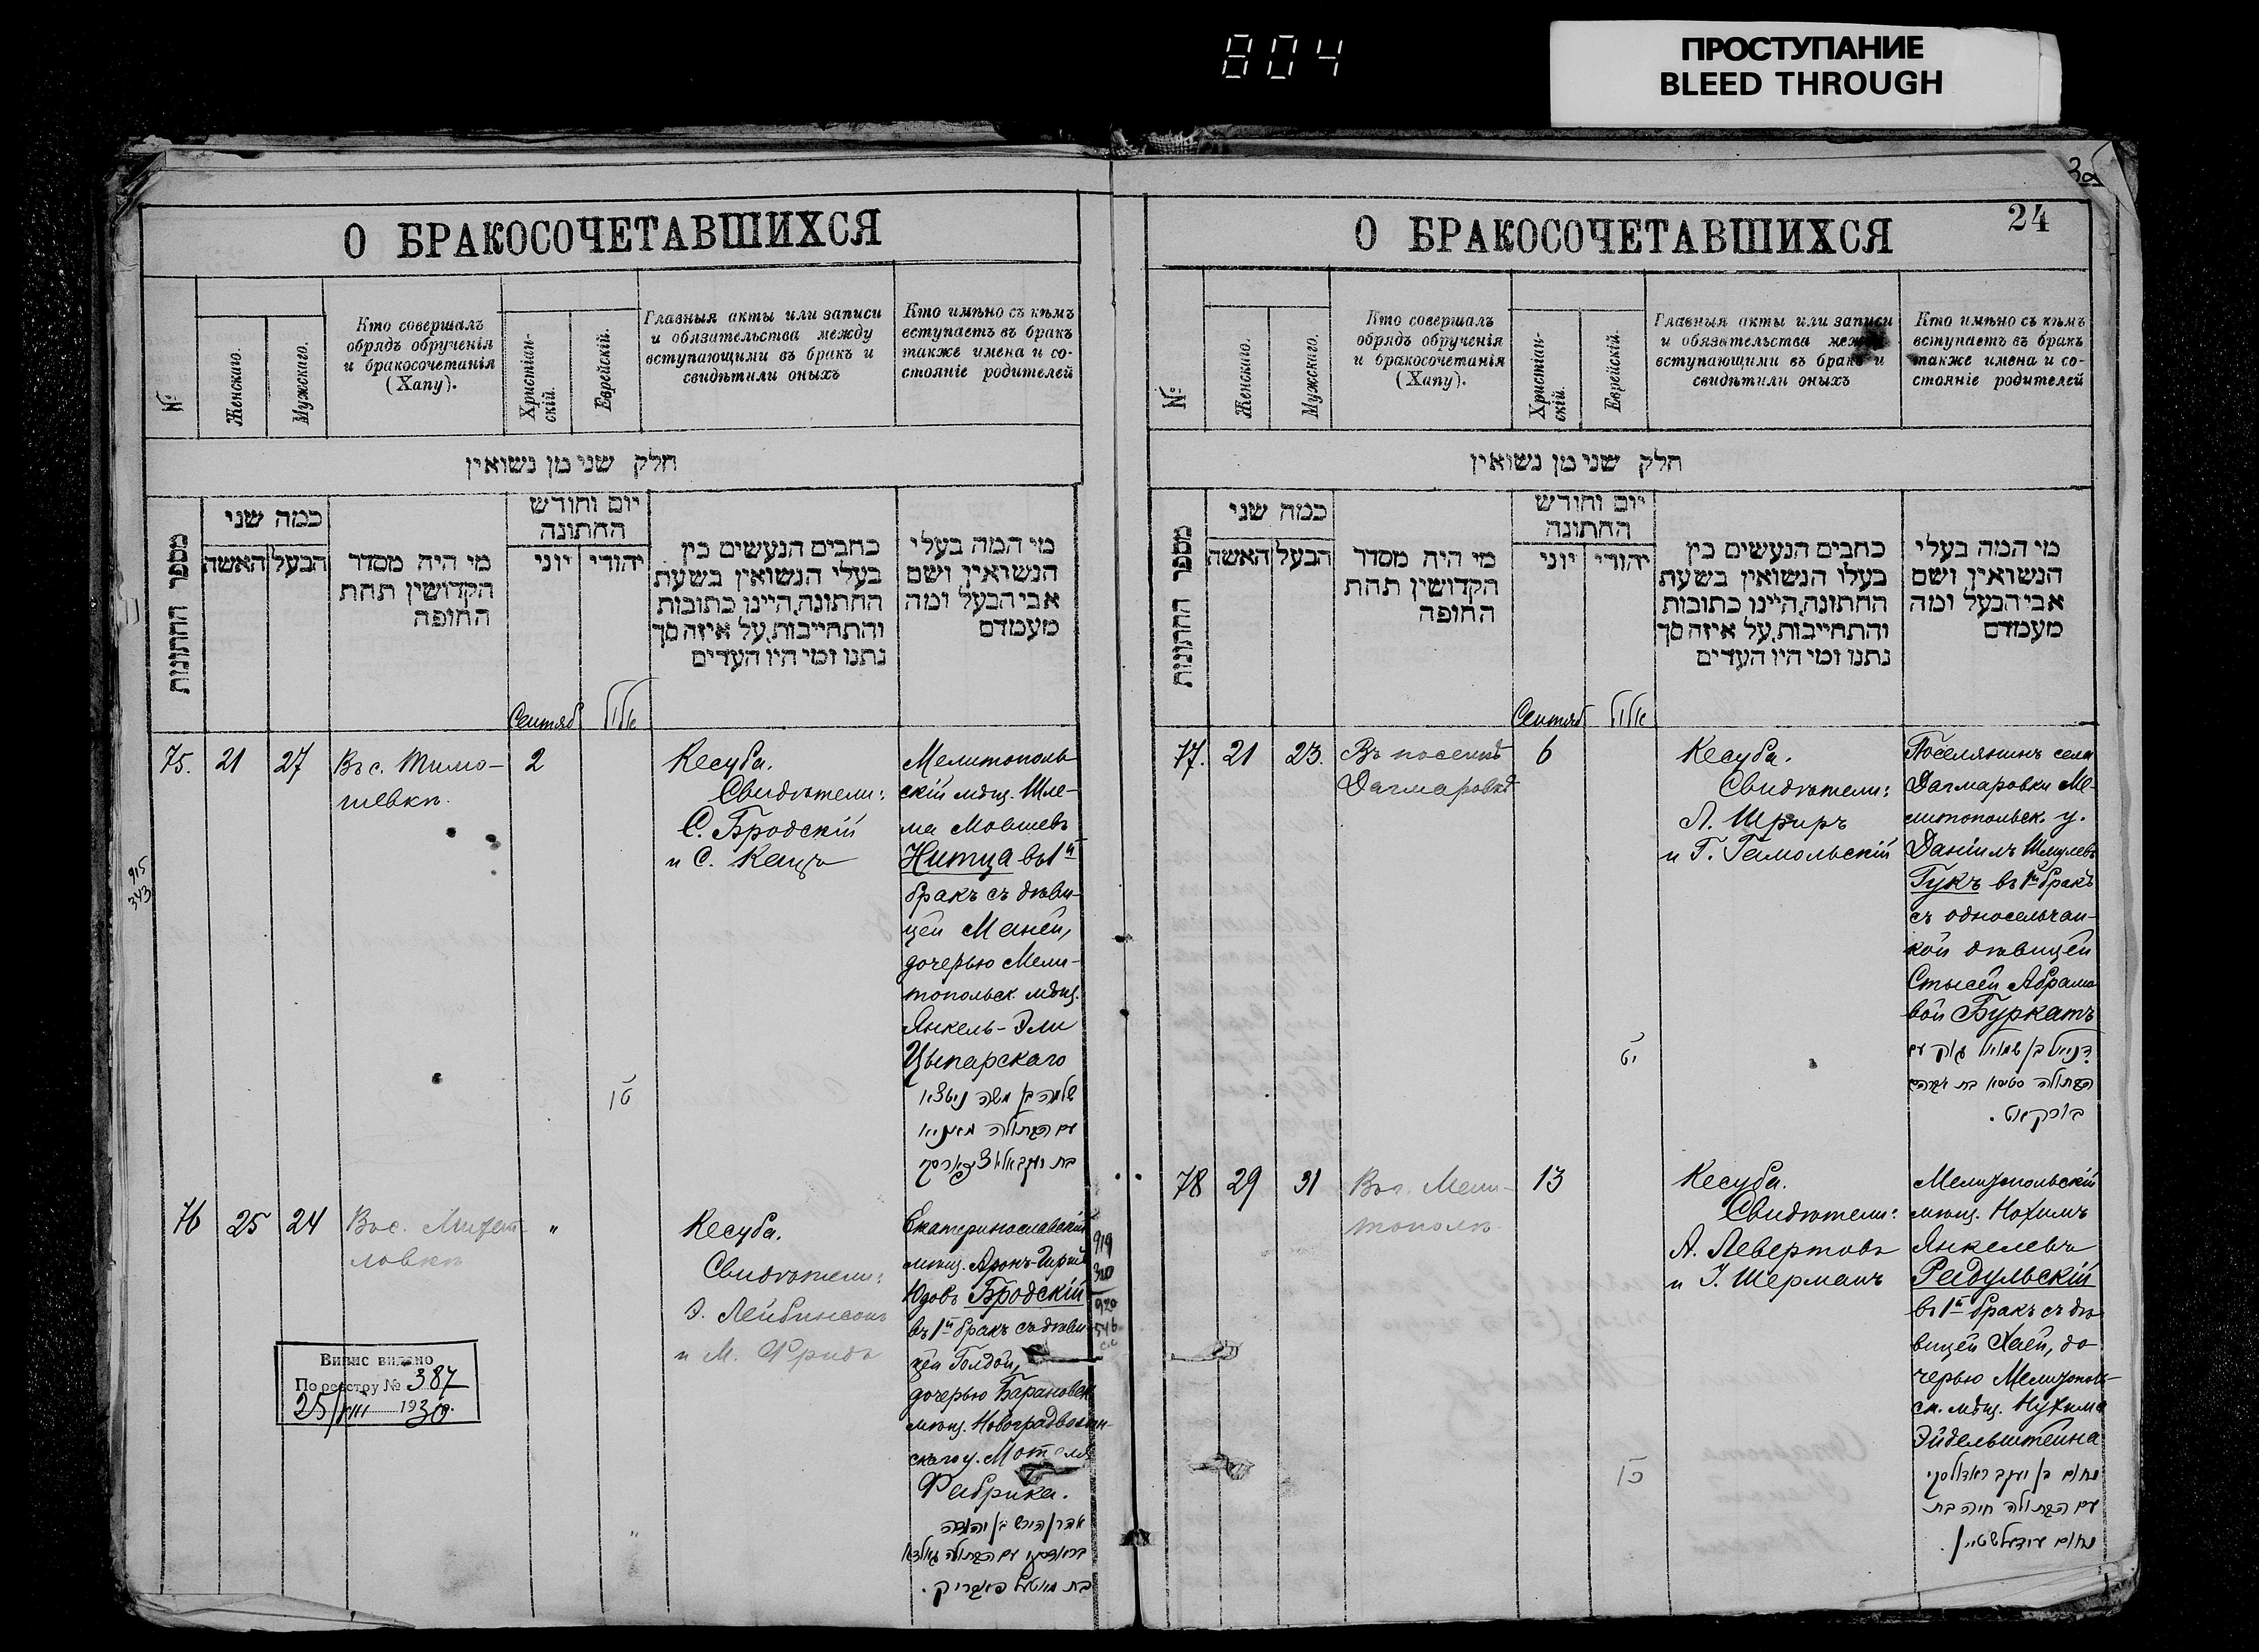 804
ПРОСТУПАНИЕ
BLEED THROUGH
О БРАКОСОЧЕТАВШИХСЯ
№
Женскаго.
Мужскаго.
Кто совершалъ
обрядъ обрученія
и бракосочетанія
(Хапу).
Христіан-
скій.
Еврейскій.
Главныя акты или записи
и обязательства между
вступающими въ бракъ и
свидѣтили оныхъ
Кто имѣно съ кѣмъ
вступаетъ въ бракъ
также имена и со-
стояніе родителей
חלק שני מן נשואין
מספר החתונות
כמה שני
האשה
הבעל
מי היה מסדר
הקדושין תחת
החופה
יום וחודש
החתונה
יוני
יהודי
כתבים הנעשים בין
בעלי הנשואין בשעת
החתונה, היינו כתובות
והתחייבות, על איזה סך
נתנו ומי היו העדים
מי המה בעלי
הנשואין ושם
אבי הבעל ומה
מעמדם
Сентяб
אלול
75.
21
27
Въ с. Тимо-
шевкѣ.
2
טו
Кесуба.
Свидѣтели:
С. Бродскій
и С. Кацъ
Мелитополь
скій мѣщ. Шле-
ма Мовшевъ
Нитца въ 1й
бракъ съ дѣви-
цей Маней,
дочерью Мели-
топольск. мѣщ.
Янкель-Эли
Цыпарскаго
שלמה בן משה ניטצא
עם הבתולה מאניא
915
343
76
25
24
Въ с.
ловкѣ
"
"
Кесуба.
Свидѣтели:
Э. Лейбинсонъ
и М. Фридъ
Екатеринославскій
мѣщ. Аронъ-Гиршъ
Юдовъ Бродскій
въ 1й бракъ съ дѣви-
цей Голдой,
дочерью Барановск
мѣщ. Новоградволын-
скаго у. Мотеля
Фабрика.
אהרן הירש בן יהודה
בראדסקי עם הבתולה גאלדא
בת מאטעל פאבריק.
919
310
920
546
Випис видано
По реєстру № 387
25/VIII 1930 р.
О БРАКОСОЧЕТАВШИХСЯ
24
№
Женскаго.
Мужскаго.
Кто совершалъ
обрядъ обрученія
и бракосочетанія
(Хапу).
Христіан-
скій.
Еврейскій.
Главныя акты или записи
и обязательства между
вступающими въ бракъ и
свидѣтили оныхъ
Кто имѣно съ кѣмъ
вступаетъ въ бракъ
также имена и со-
стояніе родителей
חלק שני מן נשואין
מספר החתונות
כמה שני
האשה
הבעל
מי היה מסדר
הקדושין תחת
החופה
יום וחודש
החתונה
יוני
יהודי
כתבים הנעשים בין
בעלו הנשואין בשעת
החתונה, היינו כתובות
והתחייבות, על איזה סך
נתנו ומי היו העדים
מי המה בעלי
הנשואין ושם
אבי הבעל ומה
מעמדם
Сентяб
אלול
77.
21
23.
Въ поселкѣ
Дагмаровкѣ
6
יט
Кесуба.
Свидѣтели:
Л. Шриръ
и Г. Гамольскій
Поселянинъ села
Дагмаровки Ме-
литопольск. у.
Даніилъ Шмулевъ
Гукъ въ 1й бракъ
съ односельчан-
кой дѣвицей
Стысей Абрамо
вой Буркатъ
דניאל בן שמואל גוק עם
הבתולה סטיסא בת אברהם
בורקאט.
78
29
31
Въ г. Мели-
тополѣ
13
כו
Кесуба.
Свидѣтели:
А. Левертовъ
и І. Шерманъ
Мелитопольскій
мѣщ. Нохимъ
Янкелевъ
Радульскій
въ 1й бракъ съ дѣ
вицей Хаей, до
черью Мелитополь-
ск. мѣщ. Нухима
Эйдельштейна
נחום בן יעקב ראדולסקי
עם הבתולה חיה בת
נחום אידעלשטיין.